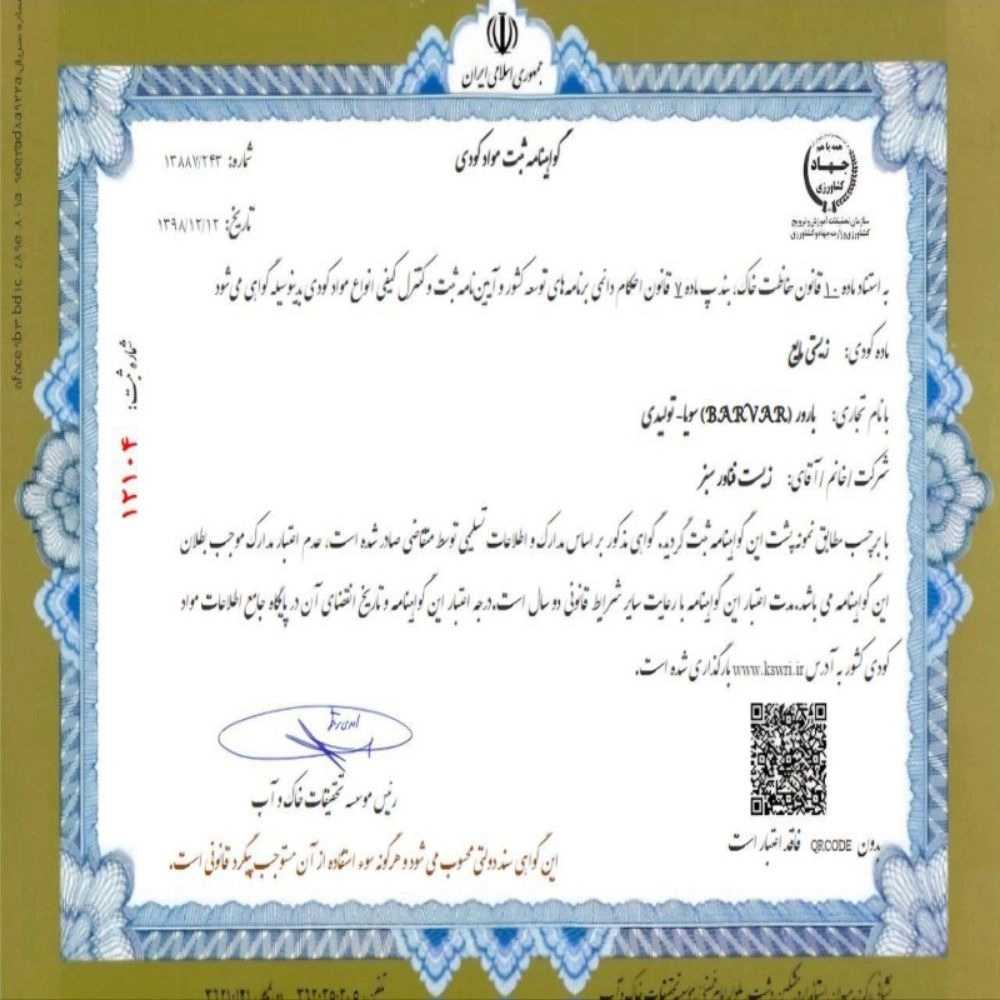 جمهوری اسلامی ایران
همه با هم
جهاد
کشاورزی
سازمان تحقیقات، آموزش و ترویج
کشاورزی وزارت جهاد کشاورزی
گواهینامه ثبت مواد کودی
شماره: ۱۳۸۸۷/۲۴۳
تاریخ: ۱۳۹۸/۱۲/۱۲
به استناد ماده ۱۰ قانون حفاظت خاک، بند پ ماده ۷ قانون احکام دائمی برنامه های توسعه کشور و آیین نامه ثبت و کنترل کیفی انواع مواد کودی بدینوسیله گواهی می شود
ماده کودی: زیستی مایع
با نام تجاری: بارور (BARVAR) سویا - تولیدی
شرکت / خانم / آقای: زیست فناور سبز
با برچسب مطابق نمونه پشت این گواهینامه ثبت گردید، گواهی مذکور بر اساس مدارک و اطلاعات تسلیمی توسط متقاضی صادر شده است، عدم اعتبار مدارک موجب بطلان
این گواهینامه می باشد، مدت اعتبار این گواهینامه با رعایت سایر شرایط قانونی دو سال است، درجه اعتبار این گواهینامه و تاریخ انقضای آن در پایگاه جامع اطلاعات مواد
کودی کشور به آدرس www.kswri.ir بارگذاری شده است.
شماره ثبت:
۱۲۱۰۴
رئیس موسسه تحقیقات خاک و آب
بدون QRCODE فاقد اعتبار است
این گواهی سند دولتی محسوب می شود و هرگونه سوء استفاده از آن مستوجب پیگرد قانونی است.